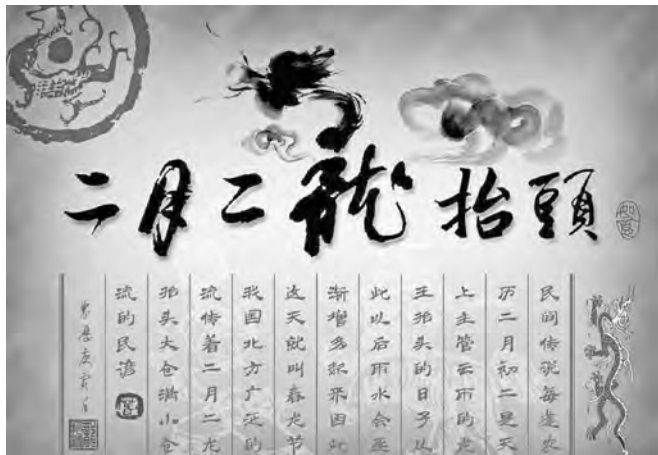 二月二龍抬頭
如意
民间传说每逢农
历二月初二是天
上主管云雨的龙
王抬头的日子从
此以后雨水会逐
渐增多起来因此
这天就叫春龙节
我国北方广泛的
流传着二月二龙
抬头大仓满小仓
流的民谚